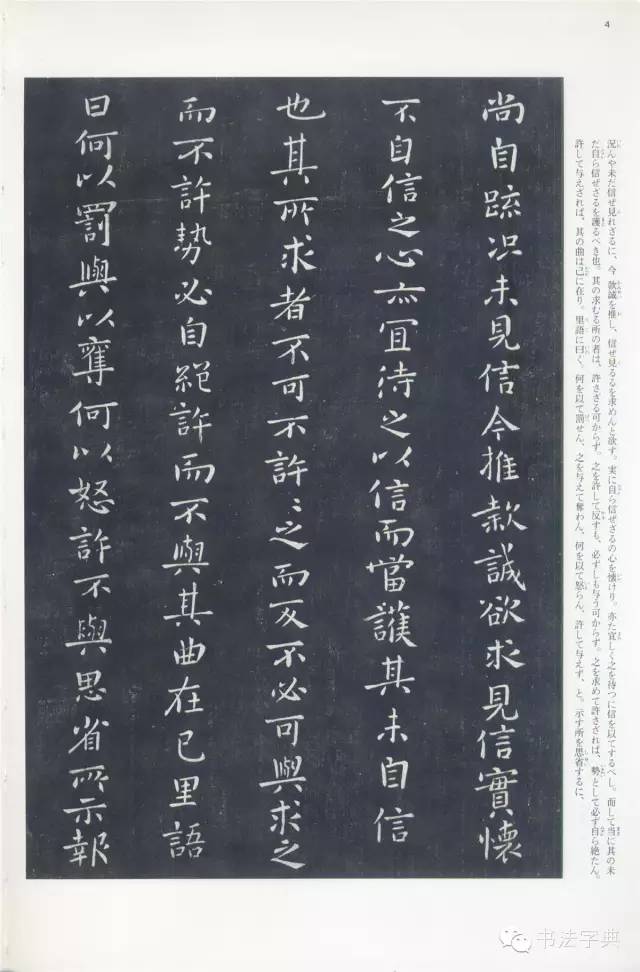 4
尚自疏况未見信今推款誠欲求見信實懷
不自信之心亦宜待之以信而當護其未自信
也其所求者不可不許〻之而反不必可與求之
而不許勢必自絕許而不與其曲在己里語
曰何以罰與以奪何以怒許不與思省所示報
況んや未だ信ぜ見れざるに、今 款誠を推し、信ぜ見るるを求めんと欲す。実に自ら信ぜざるの心を懐けり。亦た宜しく之を待つに信を以てするべし。而して当に其の未
だ自ら信ぜざるを護るべき也。其の求むる所の者は、許さざる可からず。之を許して反すも、必ずしも与う可からず。之を求めて許さざれば、勢として必ず自ら絶たん。
許して与えざれば、其の曲は己に在り。里語に曰く、何を以て罰せん、之を与えて奪わん、何を以て怒らん、許して与えず、と。示す所を思省するに、
书法字典